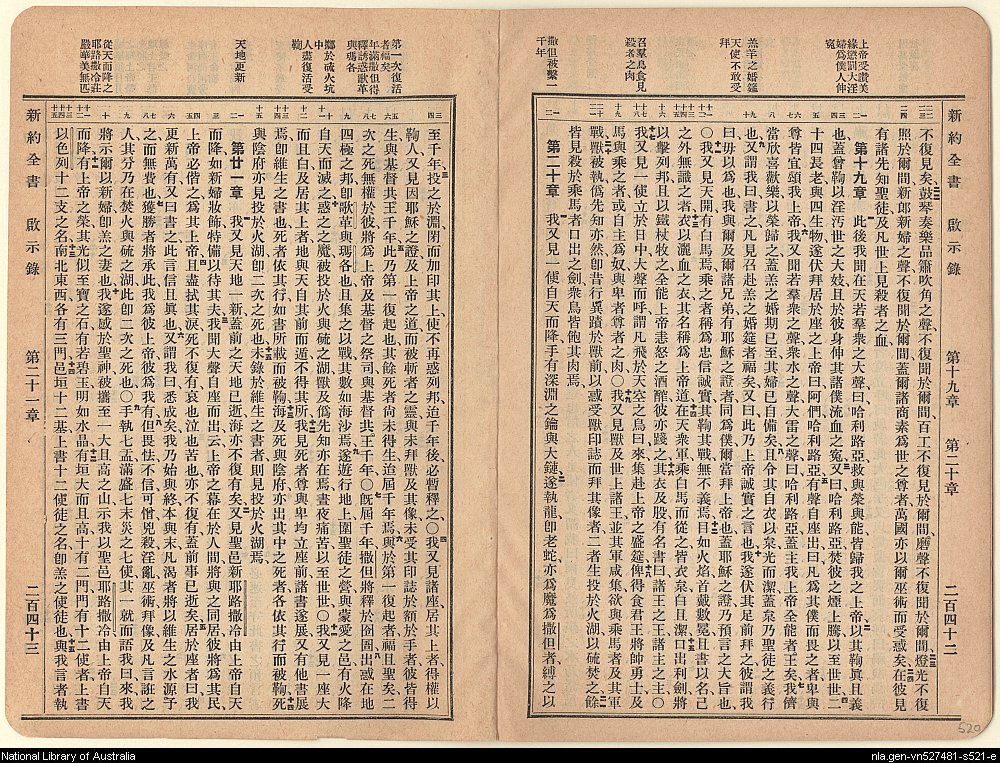 新約全書 啟示錄 第十九章 第二十章 二百四十二
上帝受讚美
緣懲罰大淫
婦為僕人伸
冤
羔羊之婚筵
天使不敢受
拜
召羣鳥食見
殺者之肉
撒但被繫一
千年
不復見矣、鼓琴奏樂品簫吹角之聲不復聞於爾間、百工不復見於爾間、磨聲不復聞於爾間、燈光不復
照於爾間、新郎新婦之聲不復聞於爾間、蓋爾諸商素為世之尊者、萬國亦以爾巫術而受惑矣、在彼見
有諸先知聖徒及凡世上見殺者之血、
第十九章 此後我聞在天若羣衆之大聲曰、哈利路亞、救與榮與能皆歸我之上帝、以其鞫眞且義
也、蓋曾鞫以淫污世之大妓、且於彼身伸其諸僕流血之寃、又曰、哈利路亞、彼焚之煙上騰、以至世世、二
十四長老與四生物遂伏拜居於座之上帝曰、阿們、哈利路亞、有聲自座出曰、凡為其僕而畏之者、無
尊卑皆宜頌我上帝、我又聞若羣衆之聲、衆水之聲、大雷之聲、曰、哈利路亞、蓋主我上帝全能者王矣、我儕
當欣喜歡樂、以榮歸之、蓋羔之婚期已至、其婦已自備矣、且令其自衣以枲、光而潔、蓋枲乃聖徒之義行
也、又謂我曰、書之、凡見召赴羔之婚筵者福矣、又曰、此乃上帝誠實之言也、我遂伏其足前拜之、彼謂我
曰、毋以為也、我與爾及爾諸兄弟有耶穌之證者同為僕、爾當拜上帝也、蓋耶穌之證乃預言之大旨也、
○我又見天開、有白馬焉、乘之者稱為忠信誠實、其鞫其戰、無不義焉、目如火焰、首戴數冕、且書以名、己
之外無識之者、衣以灑血之衣、其名稱為上帝道、在天衆軍乘白馬而從之、皆衣枲白且潔、口出利劍、將
以擊列邦、且以鐵杖牧之、全能上帝恚怒之酒醡、彼亦踐之、其衣及股有名書曰、諸王之王、諸主之主、○
我又見一使立於日中、大聲而呼、謂凡飛於天空之鳥曰、來集、赴上帝之盛筵、俾得食君王將帥勇士及
馬與乘之者、或自主、為奴、與卑者尊者之肉、○我又見獸及世上諸王、並其軍咸集、欲與乘馬者及其軍
戰、獸被執、偽先知亦然、卽昔行異蹟於獸前、以惑受獸印誌而拜其像者、二者生投於火湖、以硫焚之、餘
皆見殺於乘馬者口出之劍、衆鳥皆飽其肉焉、
第二十章 我又見一使自天而降、手有深淵之鑰與大鏈、遂執龍、卽老蛇、亦為魔、為撒但者、縛之以
第一次復活
者福矣
年滿撒但得
釋誘惑歌革
與瑪各
擲於硫火坑
中
人盡復活受
鞫
天地更新
從天而降之
耶路撒冷莊
嚴華美無匹
至千年、投之於淵、閉而加印其上、使不再惑列邦、迨千年後、必暫釋之、○我又見諸座、居其上者得權以
鞫人、又見因耶穌之證及上帝之道而被斬者之靈、與未拜獸及其像、未受其印誌於額於手者、彼皆得
生、與基督共王千年、此乃第一復起也、其餘死者尚未得生、迨屆千年焉、與於第一復起者、福且聖矣、二
次之死無權於彼、將為上帝及基督之祭司、與基督共王千年、○旣屆千年、撒但將釋於囹圄、出惑在地
四極之邦、卽歌革與瑪各也、且集之以戰、其數如海沙焉、遂遊行地上、圍聖徒之營與蒙愛之邑、有火降
自天而滅之、惑之之魔被投於火與硫之湖、獸及偽先知亦在焉、晝夜痛苦、以至世世、○我又見一座大
而且白、及居其上者、地與天自其前而遁、不得其所、我見死者尊與卑均立座前、諸書遂展、又有他書展
焉、卽維生之書也、死者依其行、如書所載而被鞫、海及死與陰府亦出其中之死者、各依其行而被鞫、死
與陰府亦見投於火湖、卽二次之死也、未錄於維生之書者、則見投於火湖焉、
第廿一章 我又見天地一新、蓋前之天地已逝、海亦不復有矣、又見聖邑新耶路撒冷、由上帝自天
而降、如新婦妝飾特備以待其夫、我聞大聲自座而出云、上帝之幕在於人間、將與之同居、彼將為其民、
上帝必偕之、為其上帝、且盡拭其淚、死不復有、哀也泣也苦也、亦不復有、蓋前事已逝矣、居於座者曰、我
更新萬有、又曰、書之、此言信且眞也、又謂我曰、悉成矣、我乃始與終、本與末、凡渴者、將以維生之水源予
之、而無費也、獲勝者將承此、我為彼上帝、彼為我子、但畏怯、不信、可憎、兇殺、淫亂、巫術、拜像、及凡言誑之
人、其分乃在焚火與硫之湖、此卽二次之死也、○手執七盂滿盛七末災之七使、其一就而語我曰、來、我
將示爾以新婦、卽羔之妻也、我遂感於聖神、被攜至一大且高之山、示我以聖邑耶路撒冷、由上帝自天
而降、有上帝之榮、其光似至寶之石、有若碧玉、明如水晶、有垣大而且高、十有二門、門有十二使者、上書
以色列十二支之名、南北東西各有三門、邑垣十二基、上書十二使徒之名、卽羔之使徒也、與我言者、執
新約全書 啟示錄 第二十一章 二百四十三
520
National Library of Australia
nla.gen-vn527481-s521-e